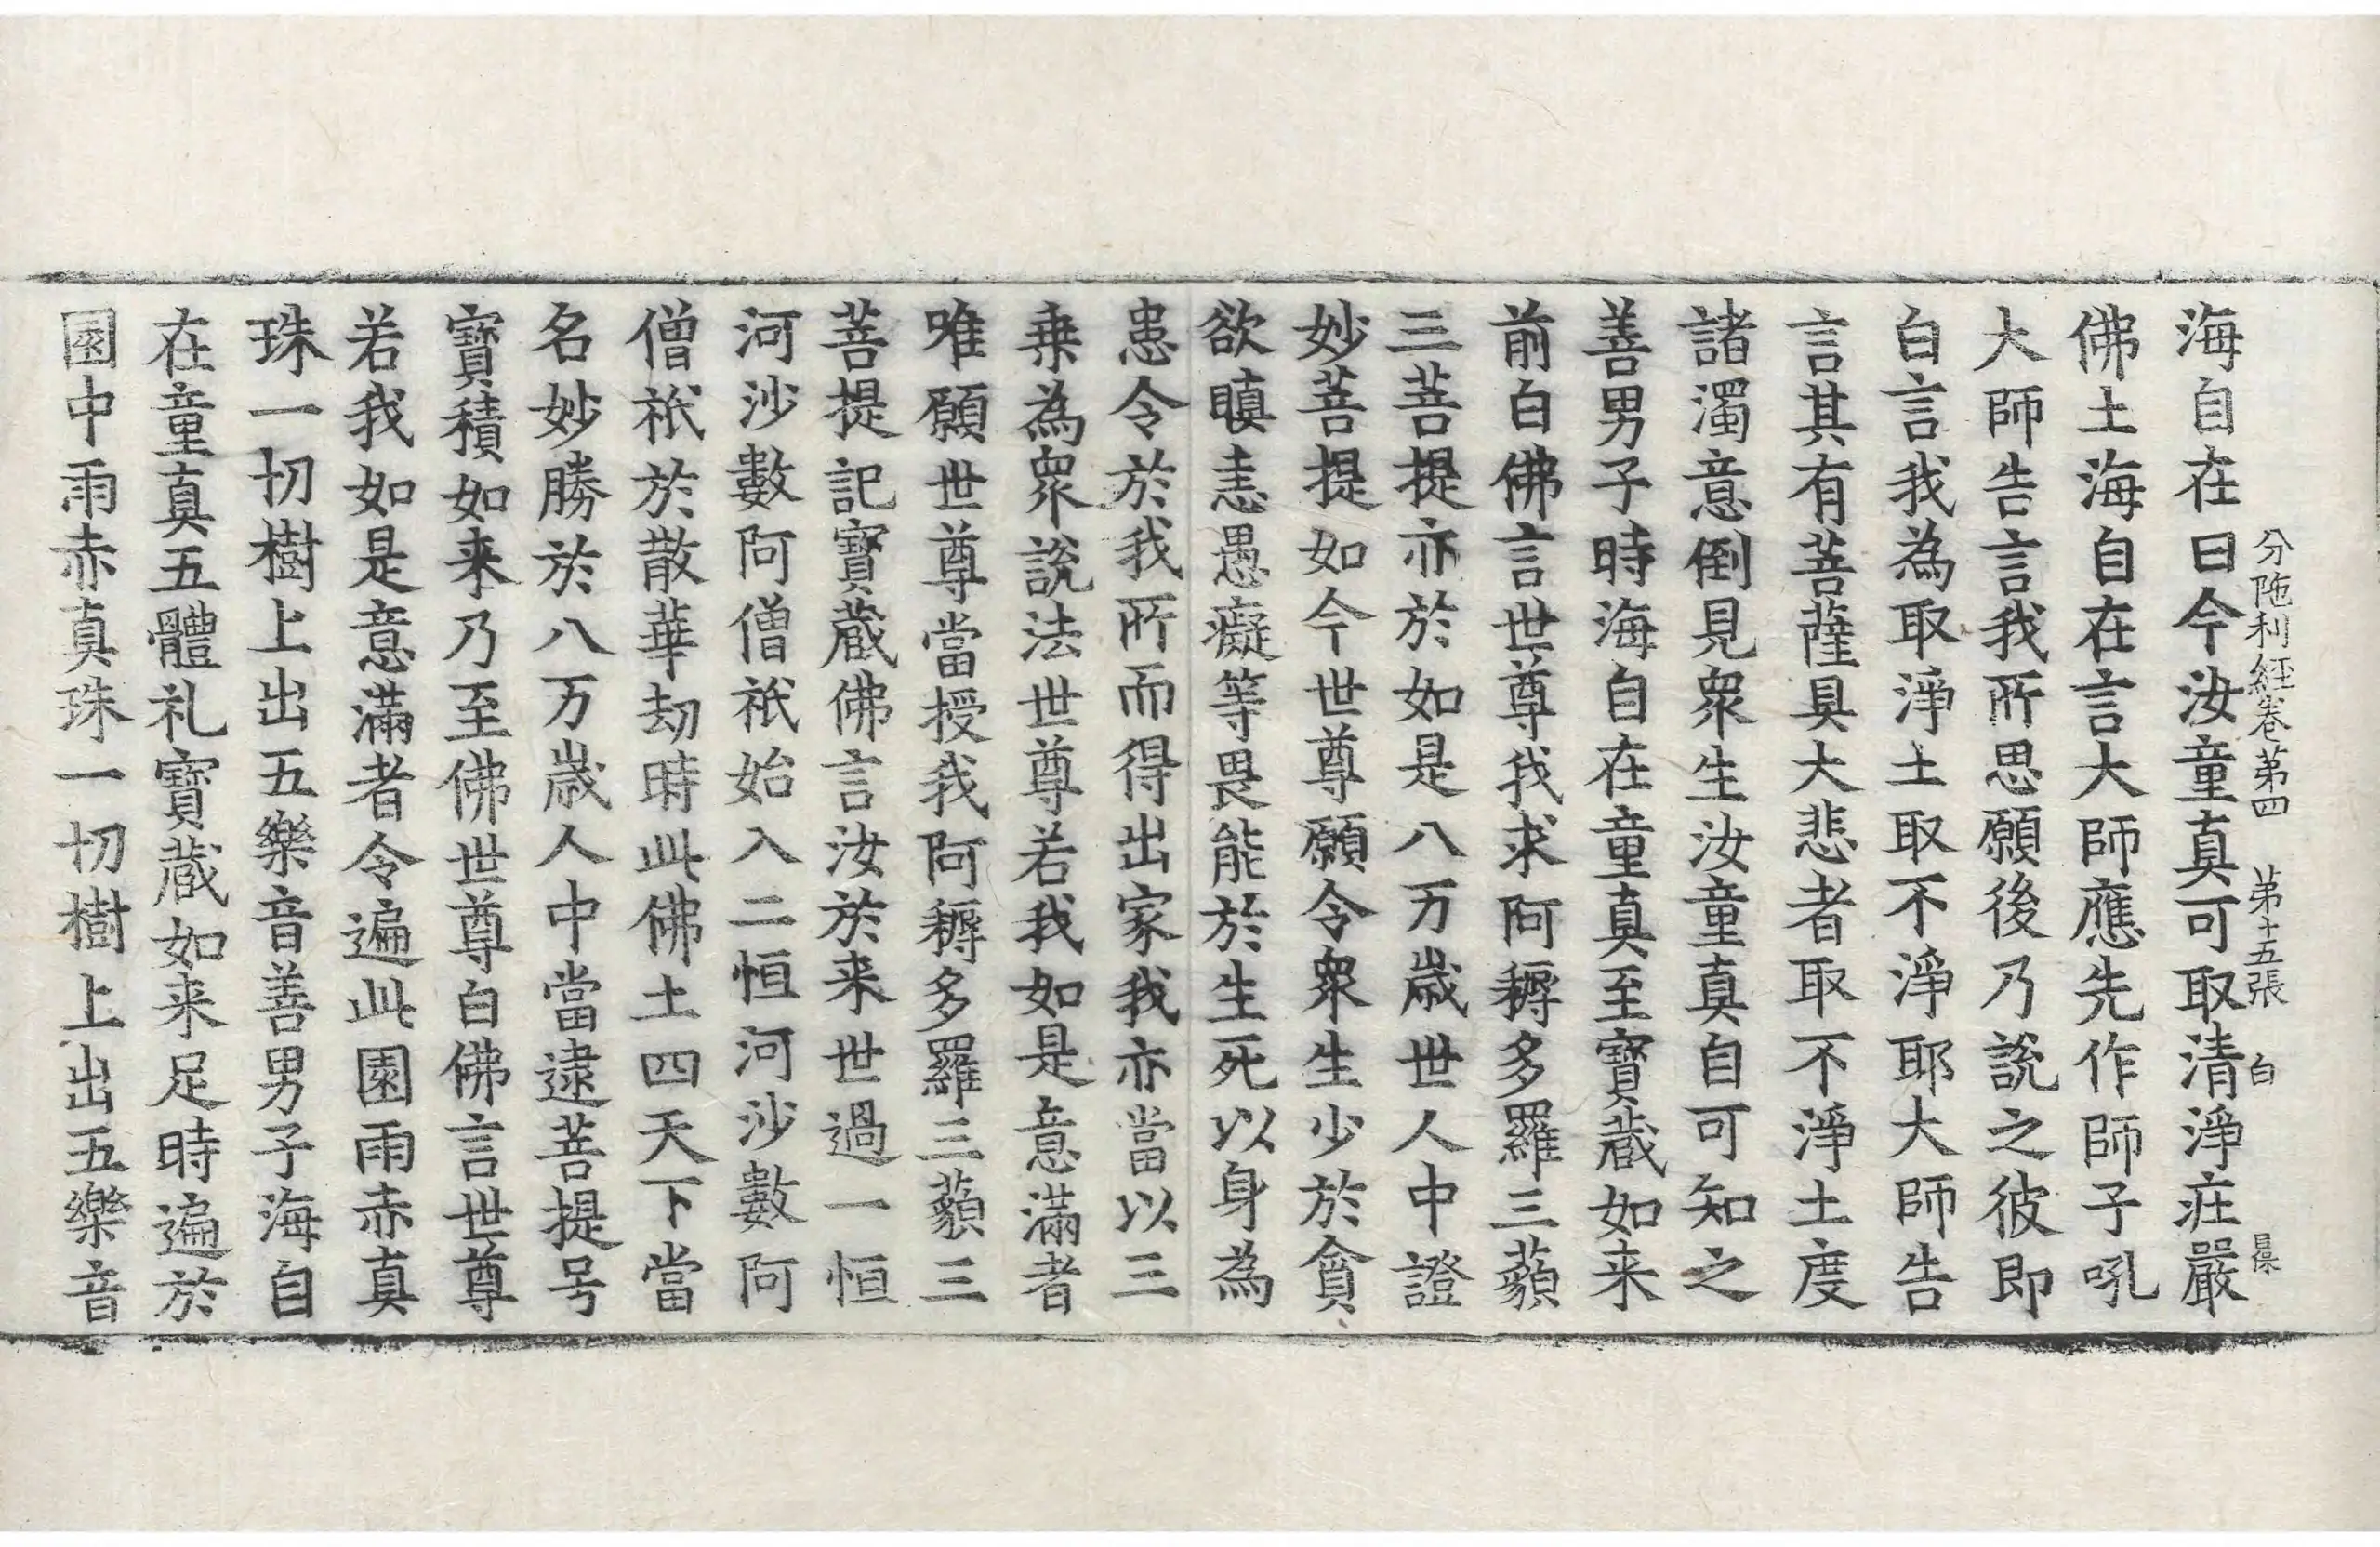 分陁利経卷第四 第十五張 白
海自在曰今汝童真可取清淨㽵嚴
佛土海自在言大師應先作師子吼
大師告言我所思願後乃說之彼即
白言我為取淨土取不淨耶大師告
言其有菩薩具大悲者取不淨土度
諸濁意倒見衆生汝童真自可知之
善男子時海自在童真至寶蔵如来
前白佛言世尊我求阿耨多羅三藐
三菩提亦於如是八万嵗世人中證
妙菩提如今世尊願令衆生少於貪
欲瞋恚愚癡等畏能於生死以身為
患令於我所而得出家我亦當以三
乗為衆說法世尊若我如是意滿者
唯願世尊當授我阿耨多羅三藐三
菩提記寶蔵佛言汝於来世過一恒
河沙數阿僧祇始入二恒河沙數阿
僧祇於散華劫時此佛土四天下當
名妙勝於八万嵗人中當逮菩提号
寶積如来乃至佛世尊白佛言世尊
若我如是意滿者令遍此園雨赤真
珠一切樹上出五樂音善男子海自
在童真五體礼寶蔵如来足時遍於
園中雨赤真珠一切樹上出五樂音